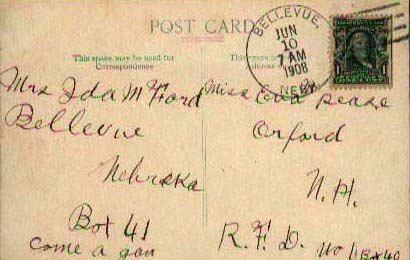 POST CARD
This space may be used for
Correspondence
BELLEVUE,
JUN
10
7 AM
1908
NEBR
Mrs Ida M Ford
Bellevue
Nebraska
Box 41
Come a gan
Miss Pease
Orford
N. H.
R. F. D. No 1 Box 40